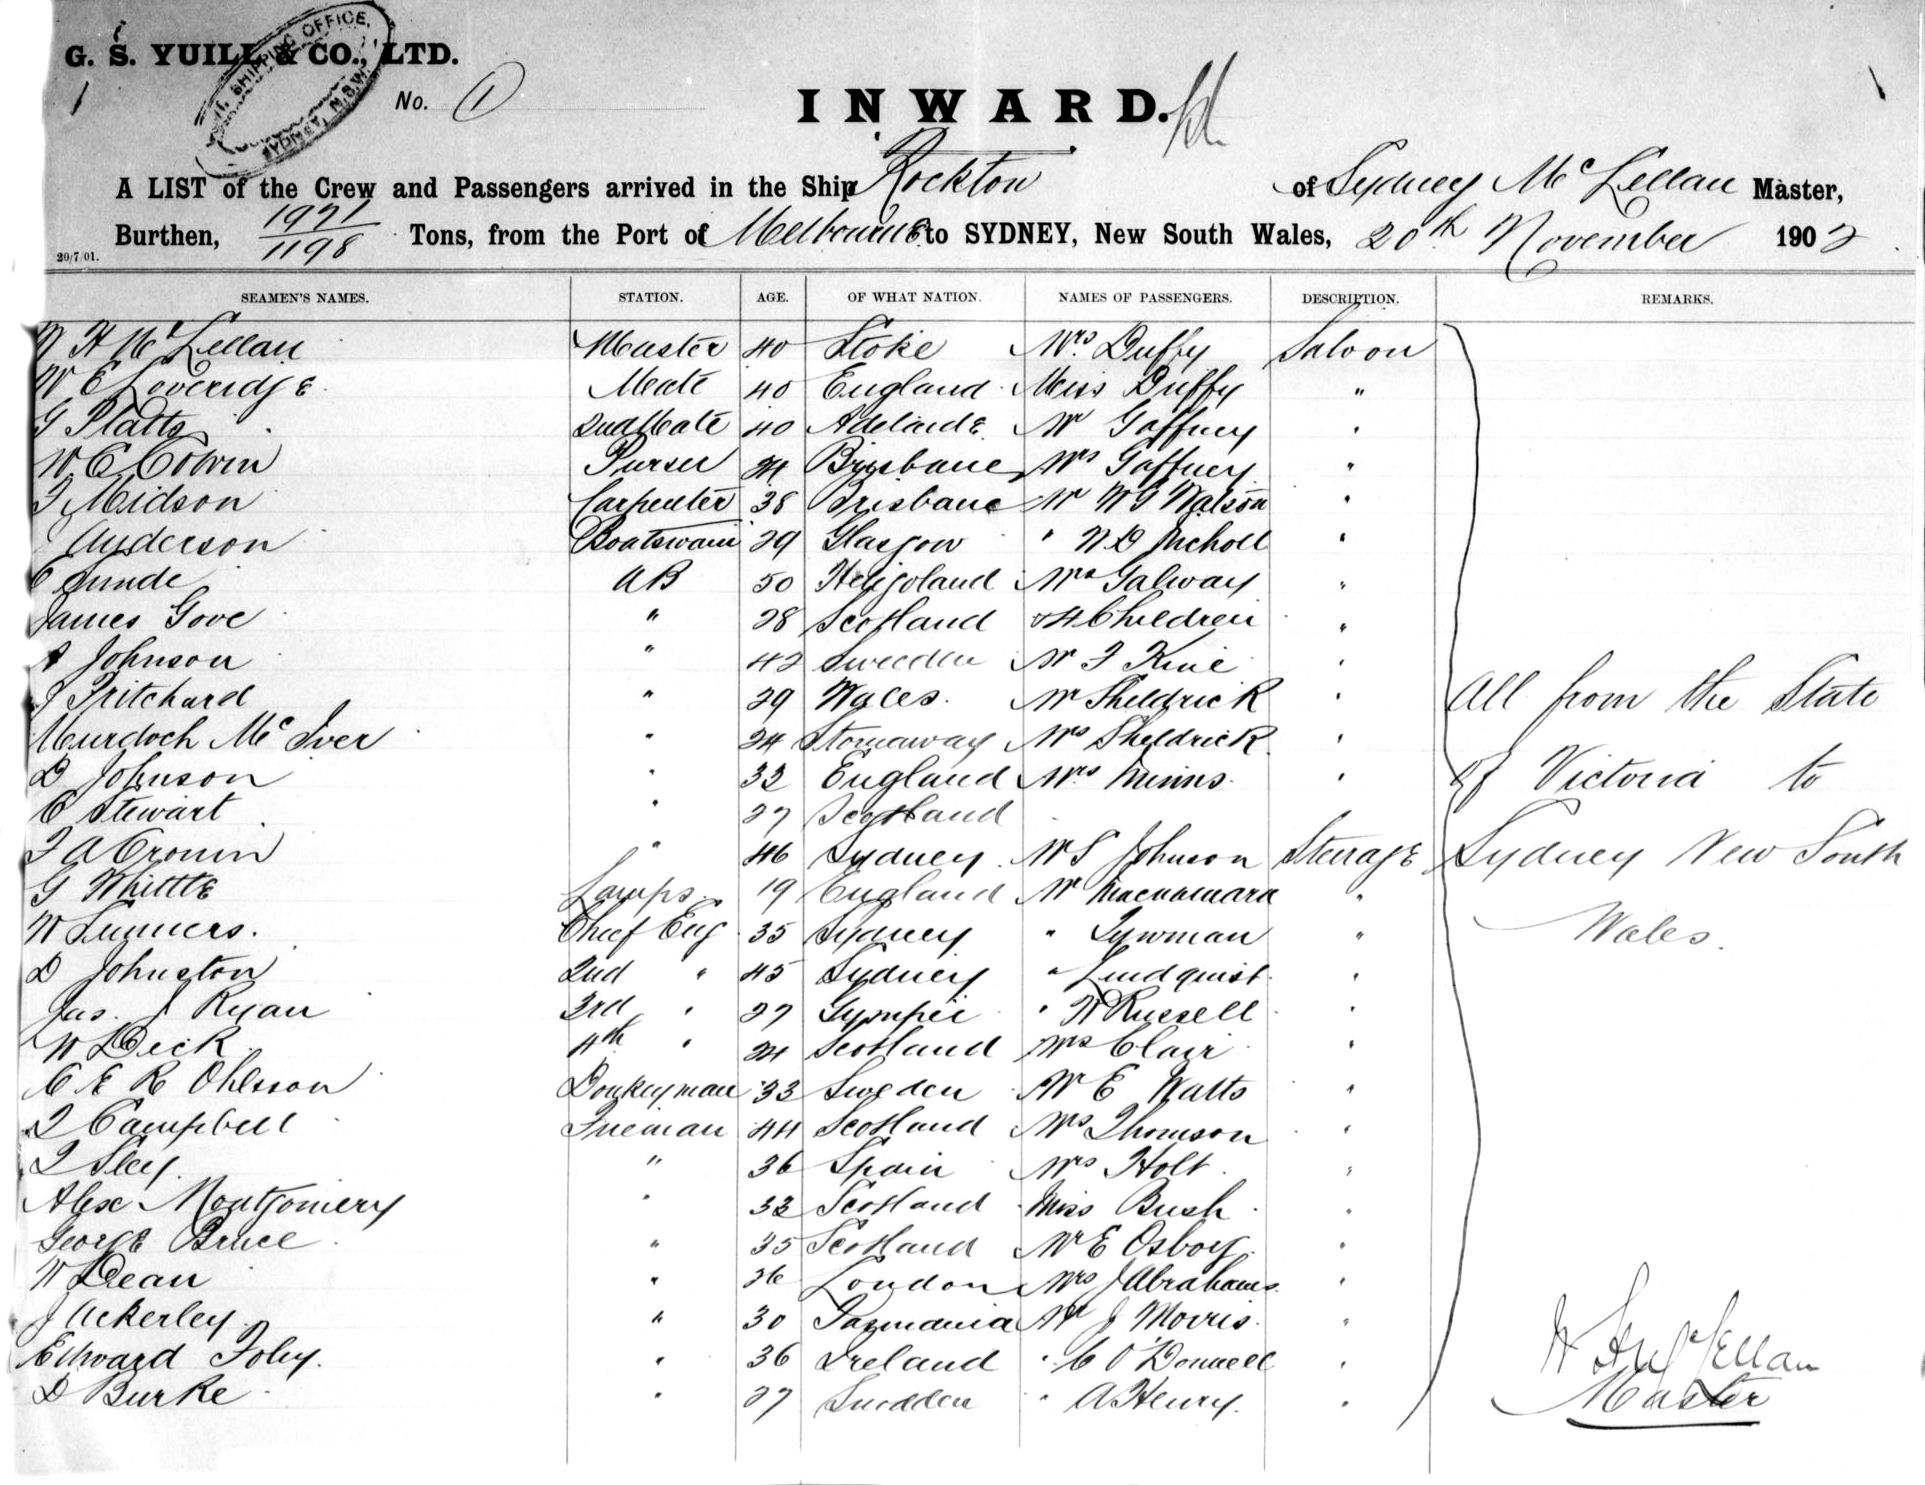 G. S. YUILL & CO., LTD.
SHIPPING OFFICE, SYDNEY, N.S.W.
No. 1
INWARD.
A LIST of the Crew and Passengers arrived in the Ship Rockton of Sydney McLellan Master,
Burthen, 1971/1198 Tons, from the Port of Melbourne to SYDNEY, New South Wales, 20th November 1902
20/7/01.
SEAMEN'S NAMES. STATION. AGE. OF WHAT NATION. NAMES OF PASSENGERS. DESCRIPTION. REMARKS.
W H McLellan Master 40 Stoke Mrs Duffy Saloon
W E Loveridge Mate 40 England Miss Duffy "
G Platts 2nd Mate 40 Adelaide Mr Gaffney "
W C Colvin Purser 24 Brisbane Mrs Gaffney "
Midson Carpenter 38 Brisbane Mr W G Watson "
Anderson Boatswain 29 Glasgow " N D Nicholl "
AB 50 Heligoland Mrs Galway "
James Gove " 28 Scotland & 4 Children "
A Johnson " 42 Sweeden Mr F "
Pritchard " 29 Wales. Mr Sheldrick "
Murdoch McIver " 24 Stornaway Mrs Sheldrick "
D Johnson " 33 England Mrs Minns "
C Stewart " 27 Scotland
A Cronin " 46 Sydney Mr S Johnson Steerage
G Whittle Lamps 19 England Mr Macnamara "
W Summers. Chief Eng 35 Sydney " "
D Johnston 2nd " 45 Sydney " Lindquist "
Jas. J Ryan 3rd " 27 Gympie " W Russell "
W Deck 4th " 24 Scotland Mrs Clair "
C E R Ohlsson Donkeyman 33 Sweden Mr E Watts "
Campbell Fireman 44 Scotland Mrs Thomson "
Sley " 36 Spain Mrs Holt "
Alex Montgomery " 33 Scotland Miss Bush "
George Bruce " 35 Scotland Mr E "
W Dean " 26 London Mrs J Abrahams "
J Ackerley " 30 Tasmania Mr J Morris "
Edward Foley. " 36 Ireland " C O'Donnell "
D Burke " 27 Suedden " A Henry. "
All from the State
of Victoria to
Sydney New South
Wales.
W H McLellan
Master